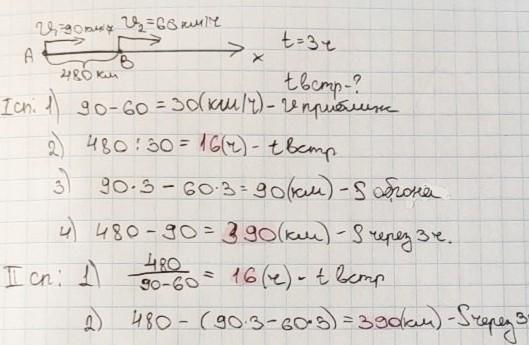 V₁=90км/ч V₂=60км/ч
t=3ч
A B x
480 км
tвстр-?
I сп: 1) 90-60=30(км/ч)-V приближ
2) 480:30=16(ч)-t встр
3) 90·3-60·3=90(км)-S обгона
4) 480-90=390(км)-S через 3ч.
II сп: 1) 480/90-60=16(ч)-t встр
2) 480-(90·3-60·3)=390(км)-S через 3